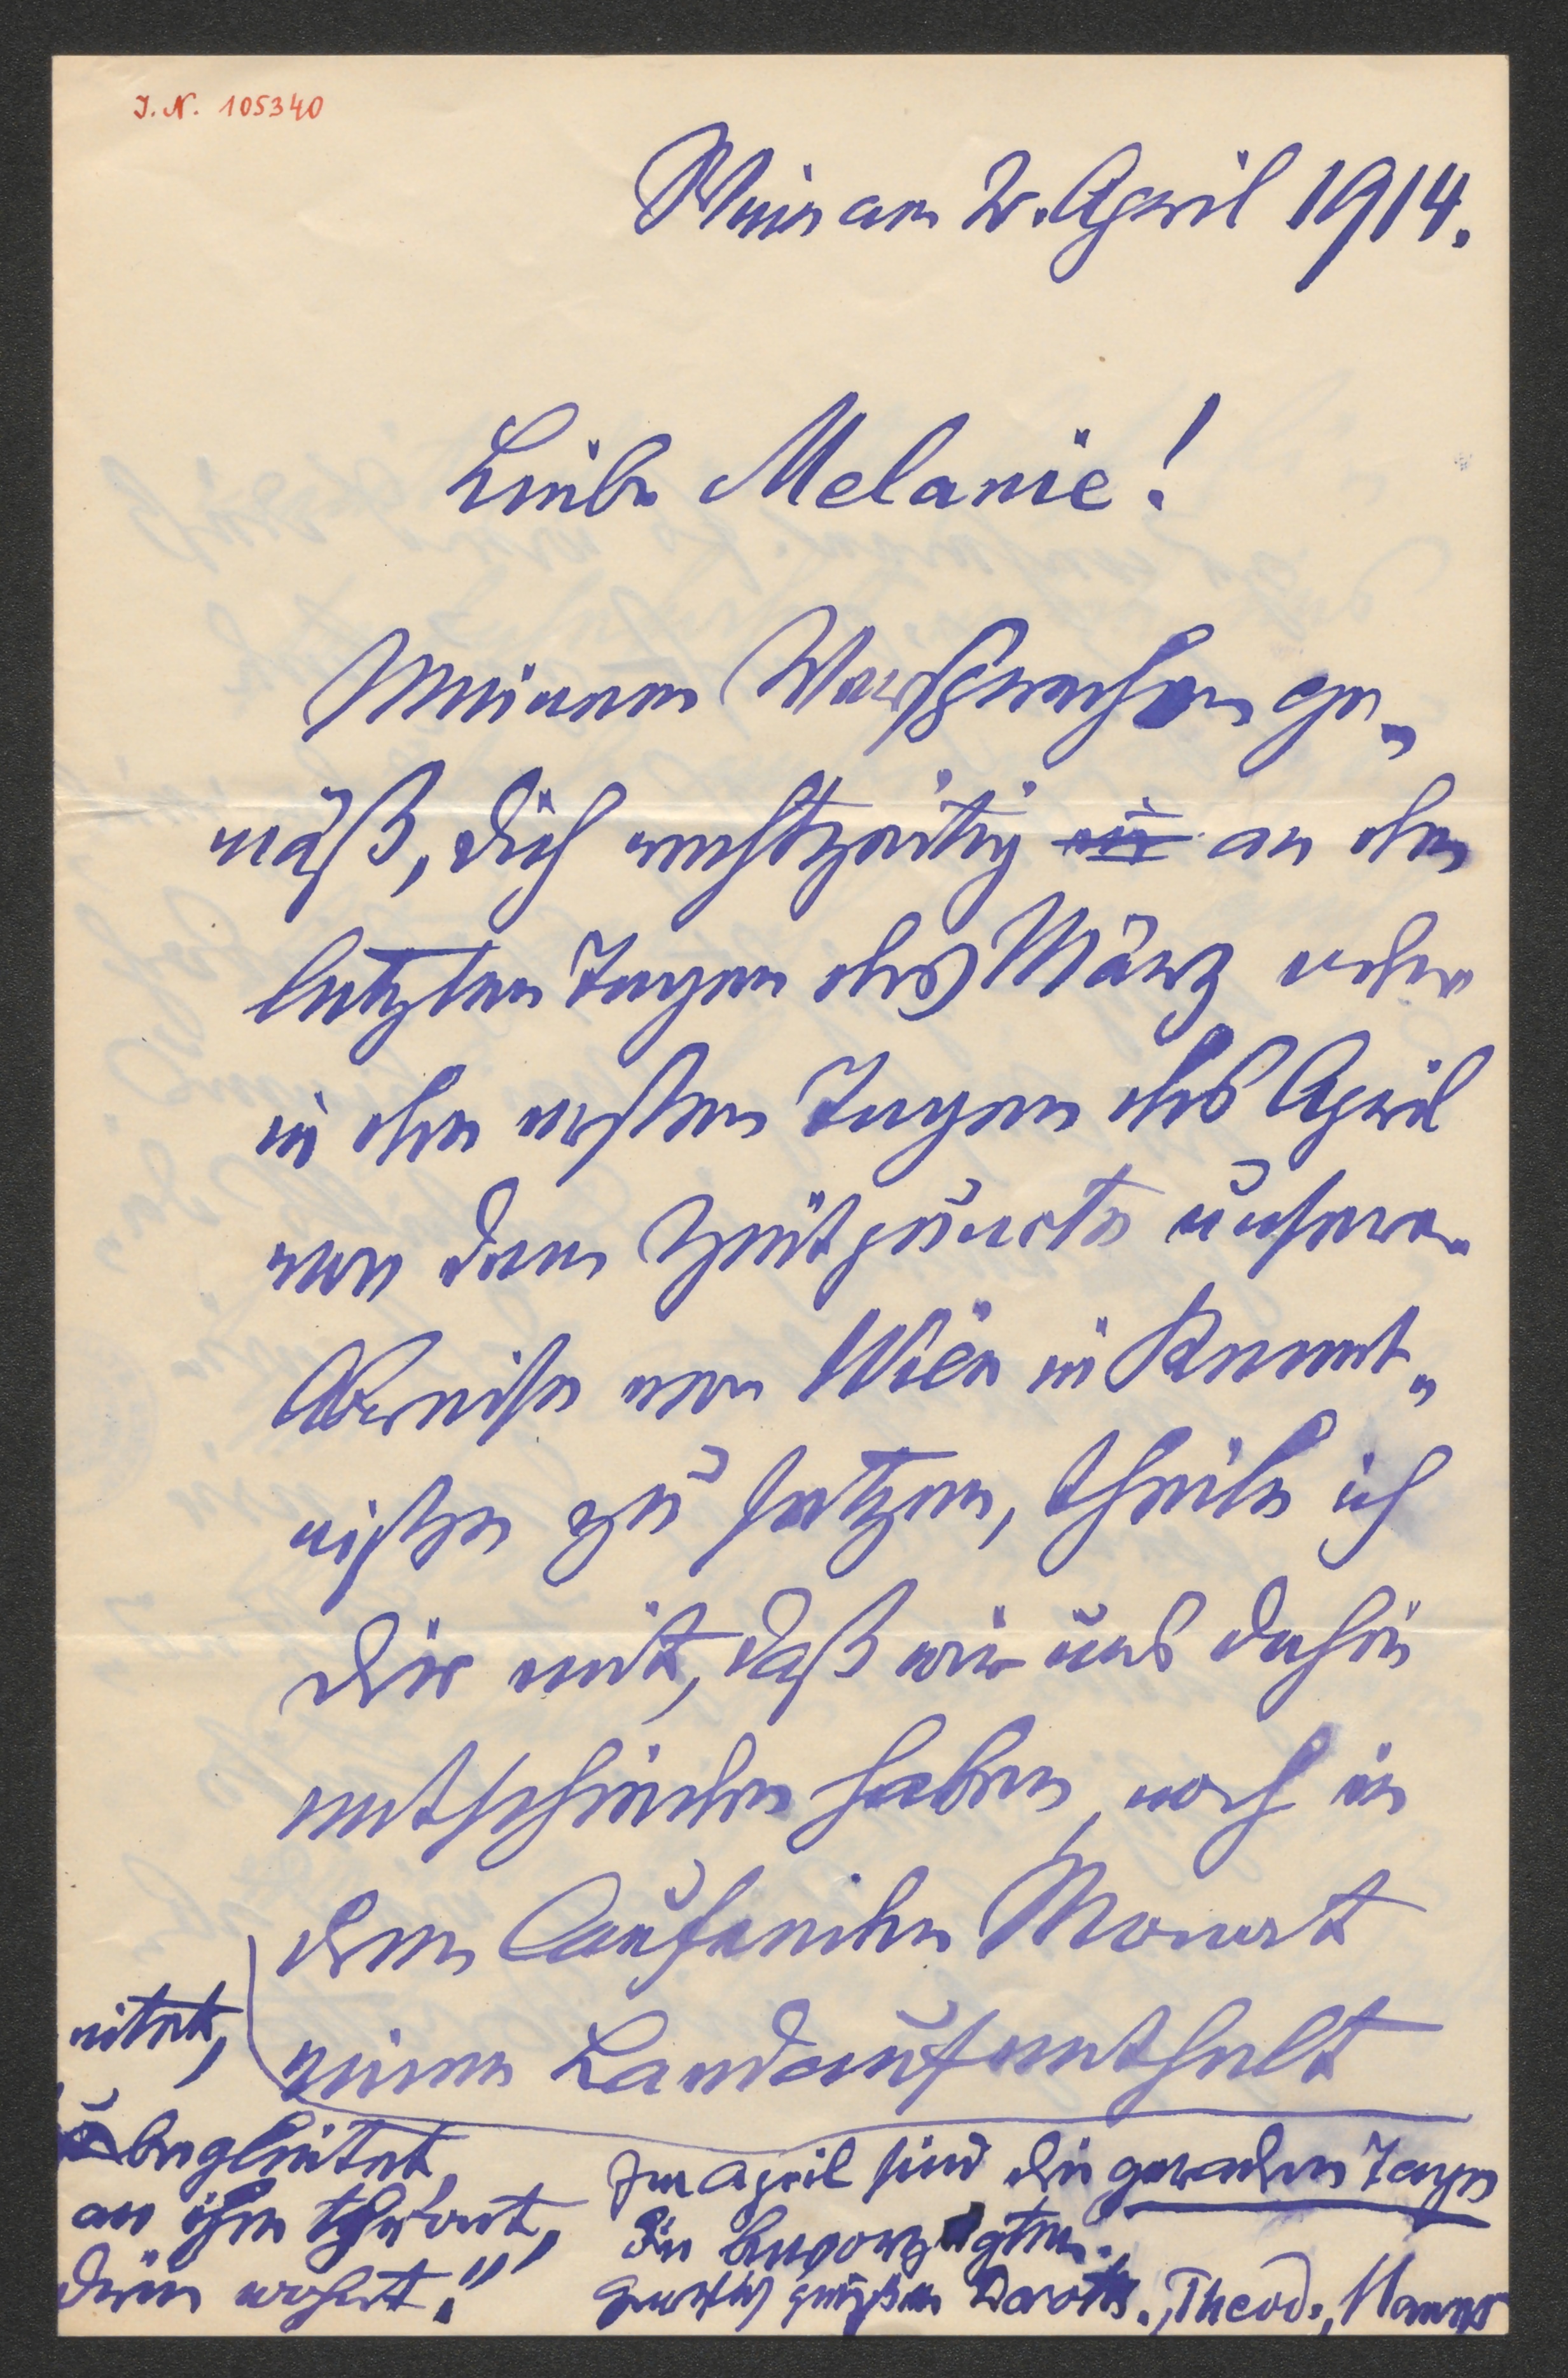 J. N. 105340
Wien am 2. April 1914.
Liebe Melanie!
Meinem Versprechen ge„
mäß, Dich rechtzeitig in an den
letzten Tagen des März oder
in den ersten Tagen des April
von dem Zeitpuncte unserer
Abreise von Wien in Kennt„
niße zu setzen, theile ich
Dir mit, daß wir uns dahin
entschieden haben, noch in
dem laufenden Monat
einen Landaufenthalt
begleitet,
an ihm
wohnt."
Im April sind die geraden Tage
die bevorzugten.
Herzlich grüßen Doroth., Theod.,